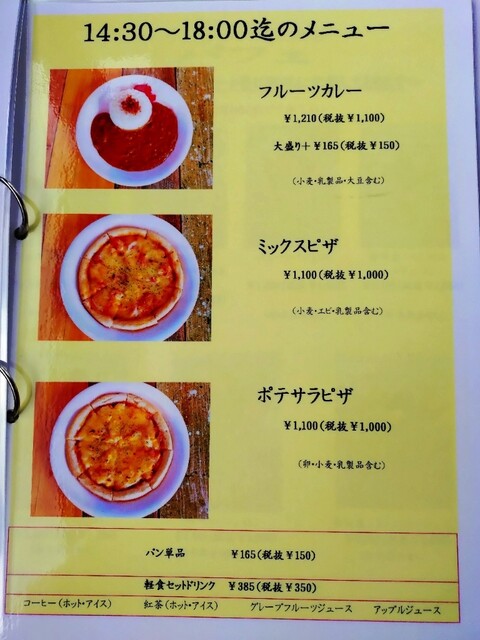 14:30～18:00迄のメニュー
フルーツカレー
￥1,210(税抜￥1,100)
大盛り＋￥165(税抜￥150)
(小麦・乳製品・大豆含む)
ミックスピザ
￥1,100(税抜￥1,000)
(小麦・エビ・乳製品含む)
ポテサラピザ
￥1,100(税抜￥1,000)
(卵・小麦・乳製品含む)
パン単品 ￥165(税抜￥150)
軽食セットドリンク ￥385(税抜￥350)
コーヒー(ホット・アイス) 紅茶(ホット・アイス) グレープフルーツジュース アップルジュース